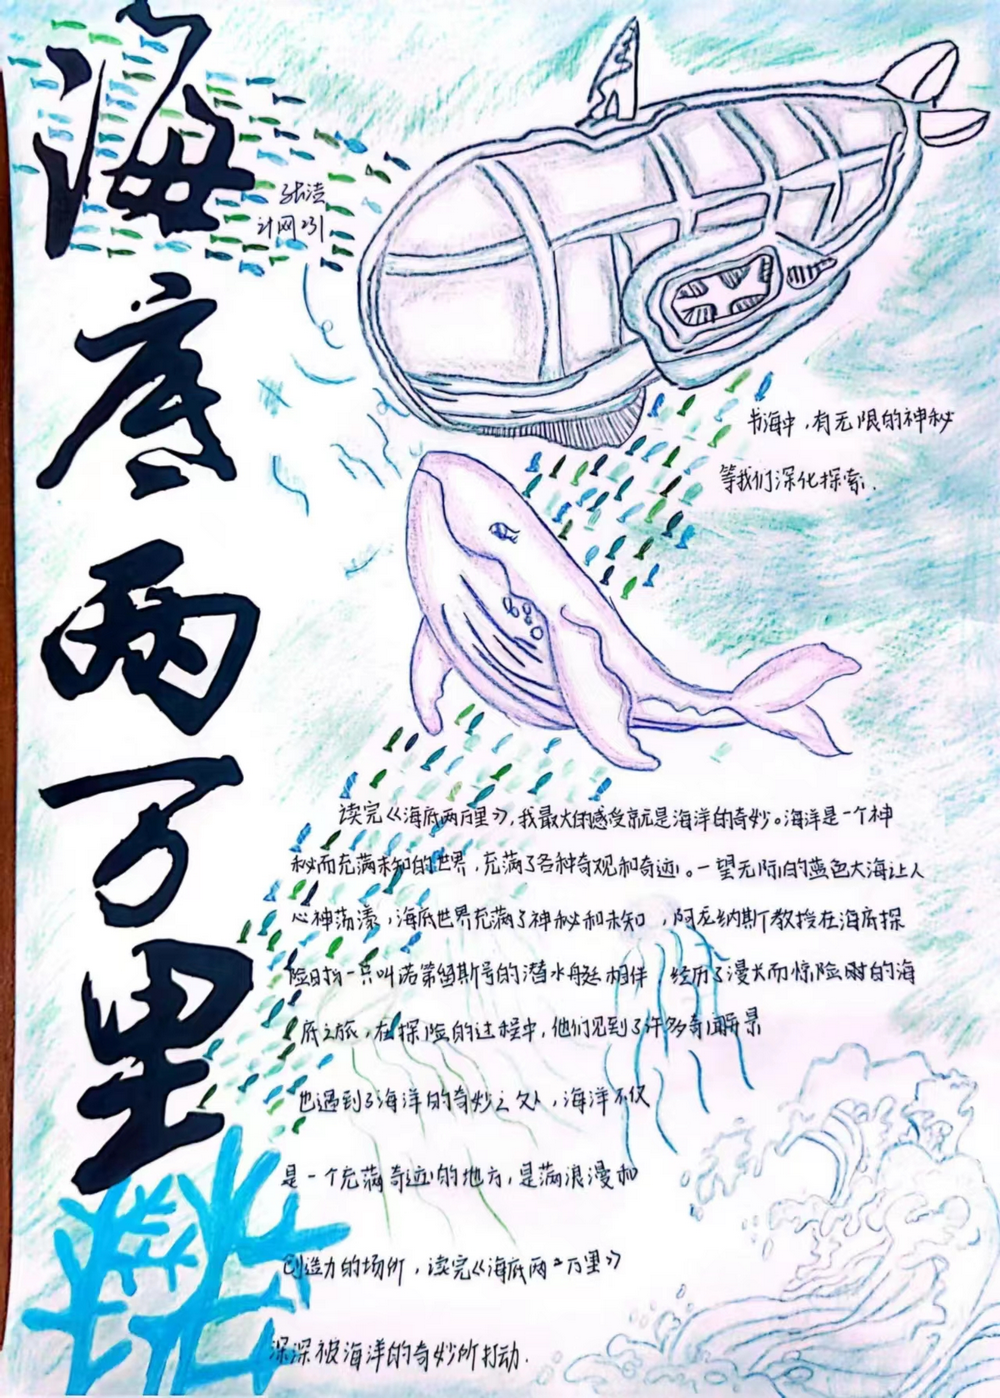 海底两万里
张洁
计网231
书海中，有无限的神秘
等我们深化探索．
读完《海底两万里》，我最大的感受就是海洋的奇妙。海洋是一个神
秘而充满未知的世界，充满了各种奇观和奇迹。一望无际的蓝色大海让人
心神荡漾，海底世界充满了神秘和未知，阿龙纳斯教授在海底探
险时与一只叫诺第留斯号的潜水艇相伴，经历了漫长而惊险的海
底之旅，在探险的过程中，他们见到了许多奇闻景
也遇到了海洋的奇妙之处，海洋不仅
是一个充满奇迹的地方，是满浪漫和
创造力的场所，读完《海底两万里》
深深被海洋的奇妙所打动．